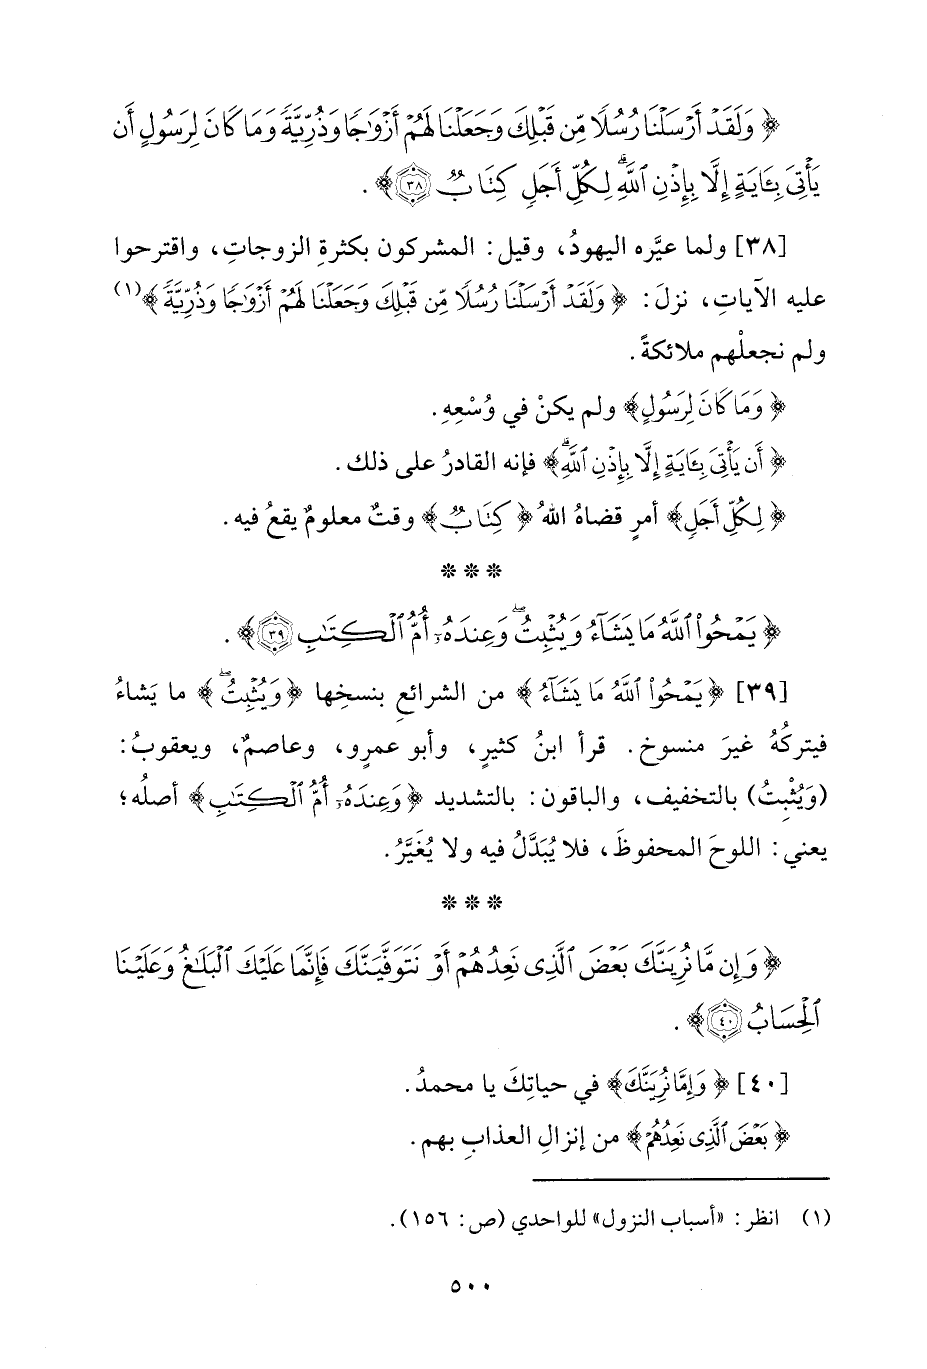 ﴿ وَلَقَدْ أَرْسَلْنَا رُسُلًا مِّن قَبْلِكَ وَجَعَلْنَا لَهُمْ أَزْوَٰجًا وَذُرِّيَّةً وَمَا كَانَ لِرَسُولٍ أَن
يَأْتِىَ بِـَٔايَةٍ إِلَّا بِإِذْنِ ٱللَّهِۗ لِكُلِّ أَجَلٍ كِتَابٌ ﴿٣٨﴾ ﴾ .
[٣٨] ولما عيَّره اليهودُ، وقيل: المشركون بكثرةِ الزوجاتِ، واقترحوا
عليه الآياتِ، نزلَ: ﴿ وَلَقَدْ أَرْسَلْنَا رُسُلًا مِّن قَبْلِكَ وَجَعَلْنَا لَهُمْ أَزْوَٰجًا وَذُرِّيَّةً ﴾(١)
ولم نجعلْهم ملائكةً.
﴿ وَمَا كَانَ لِرَسُولٍ ﴾ ولم يكنْ في وُسْعِهِ.
﴿ أَن يَأْتِىَ بِـَٔايَةٍ إِلَّا بِإِذْنِ ٱللَّهِۗ ﴾ فإنه القادرُ على ذلك.
﴿ لِكُلِّ أَجَلٍ ﴾ أمرٍ قضاهُ اللهُ ﴿ كِتَابٌ ﴾ وقتٌ معلومٌ يقعُ فيه.
* * *
﴿ يَمْحُوا۟ ٱللَّهُ مَا يَشَآءُ وَيُثْبِتُۖ وَعِندَهُۥٓ أُمُّ ٱلْكِتَٰبِ ﴿٣٩﴾ ﴾ .
[٣٩] ﴿ يَمْحُوا۟ ٱللَّهُ مَا يَشَآءُ ﴾ من الشرائعِ بنسخِها ﴿ وَيُثْبِتُۖ ﴾ ما يَشاءُ
فيتركُهُ غيرَ منسوخ. قرأ ابنُ كثيرٍ، وأبو عمرٍو، وعاصمٌ، ويعقوبُ:
(وَيُثْبِتُ) بالتخفيفِ، والباقون: بالتشديد ﴿ وَعِندَهُۥٓ أُمُّ ٱلْكِتَٰبِ ﴾ أصلُه؛
يعني: اللوحَ المحفوظَ، فلا يُبَدَّلُ فيه ولا يُغَيَّرُ.
* * *
﴿ وَإِن مَّا نُرِيَنَّكَ بَعْضَ ٱلَّذِى نَعِدُهُمْ أَوْ نَتَوَفَّيَنَّكَ فَإِنَّمَا عَلَيْكَ ٱلْبَلَٰغُ وَعَلَيْنَا
ٱلْحِسَابُ ﴿٤٠﴾ ﴾ .
[٤٠] ﴿ وَإِمَّا نُرِيَنَّكَ ﴾ في حياتِكَ يا محمدُ.
﴿ بَعْضَ ٱلَّذِى نَعِدُهُمْ ﴾ من إنزالِ العذابِ بهم.
(١) انظر: «أسباب النزول» للواحدي (ص: ١٥٦).
٥٠٠